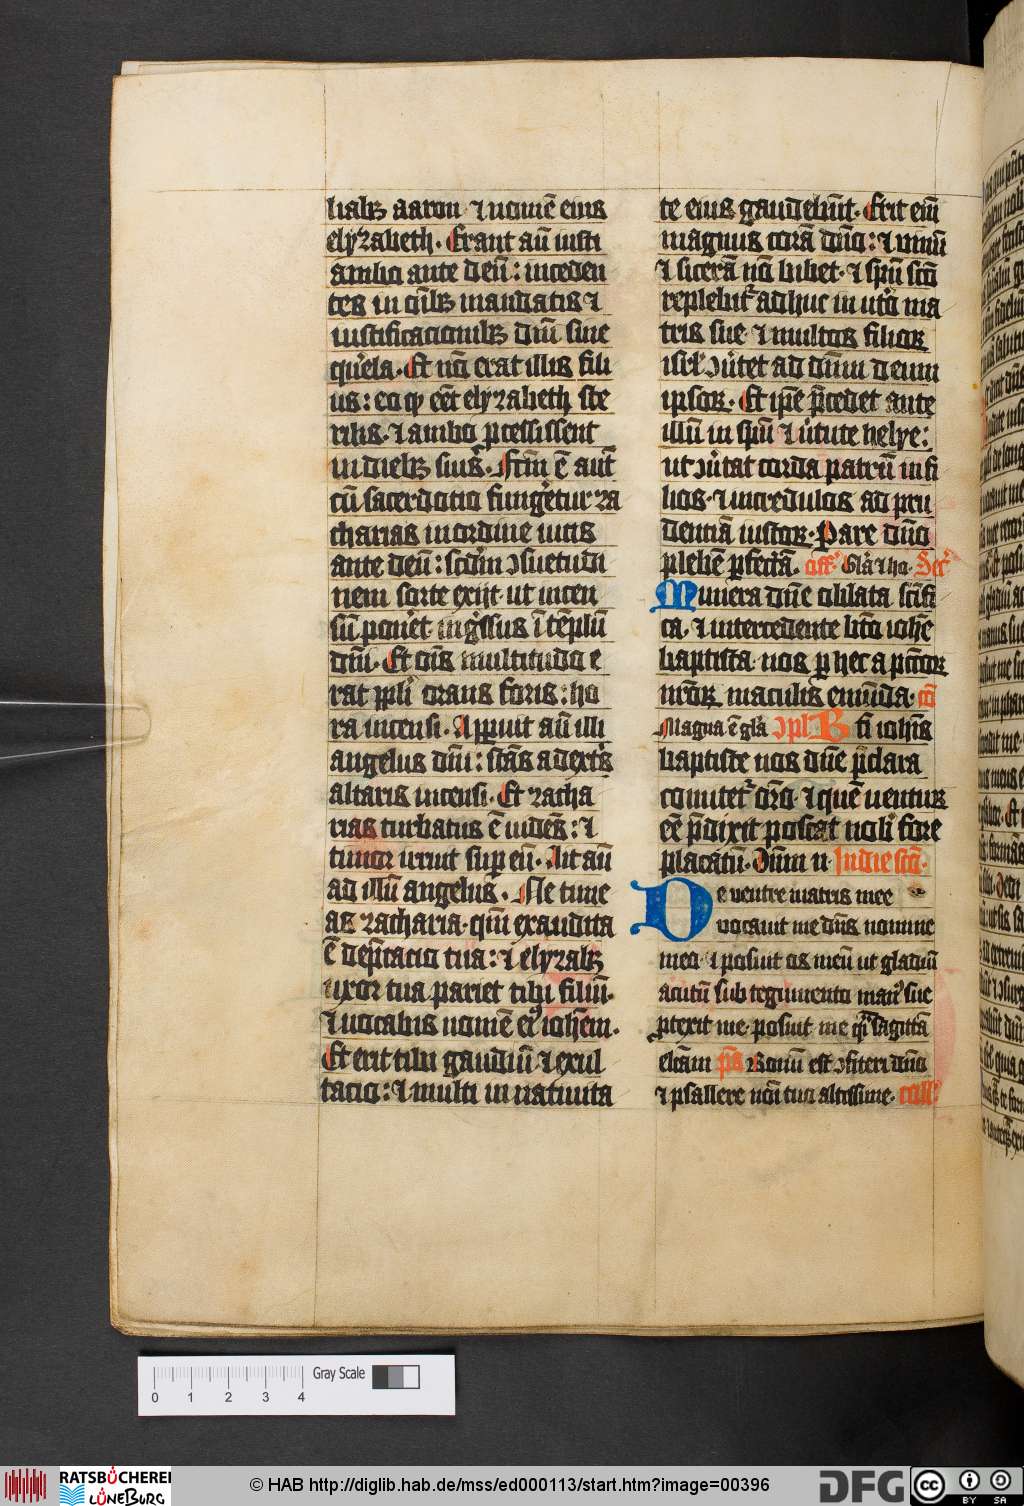 liabꝫ aaron · ⁊ nomē eius
elyzabeth · Erant aū iusti
ambo ante deū : inceden
tes in oībꝫ mandatis ⁊
iustificacionibꝫ dn̄i sine
q̄rela · Et nō erat illis fili
us : eo qꝫ eēt elyzabeth ste
rilis · ⁊ ambo ꝓcessissent
in diebꝫ suis · Fc̄m ē aut̄
cū sacerdotio fungēetur za
charias in ordine uicis
ante deū : scd̄m ꝯsuetudi
nem sorte exijt · ut incen
sū poneēt · ingr̄ssus ī tēplū
dn̄i · Et oīs multitudo e
rat ppl̄i orans foris : ho
ra incensi · Apparuit aū illi
angelus dn̄i : stās a dextris
altaris incensi · Et zacha
rias turbatus ē uidens : ⁊
timor irruit suꝑ eū · Ait aū
ad illū angelus · Ne time
as zacharia · qm̄ exaudita
ē dep̄catio tua : ⁊ elyzabꝫ
uxor tua pariet tibi filiū ·
⁊ uocabis nomē eiꝰ ioh̄em ·
Et erit tibi gaudiū · ⁊ exul
tacio : ⁊ multi in natiuita
te eius gaudebūt · Erit em̄
magnus corā dn̄o : ⁊ uinū
⁊ sicerā nō bibet · ⁊ sp̄u sc̄o
replebit᷑ adhuc in ut̄o ma
tris sue · ⁊ multos filioꝝ
isrl̄ ꝯuertet ad dn̄m deum
ipsoꝝ · Et ip̄e p̄cedet ante
illū in sp̄u ⁊ uirtute helye :
ut ꝯuertat corda patrū in fi
lios · ⁊ incredulos ad pru
dentiā iustoꝝ · Parare dn̄o
plebē ꝑfectā . off᷑ Glā ⁊ ho · Sec᷑
Munera dn̄e oblata sc̄ifi
ca · ⁊ intercedente bt̄o ioh̄e
baptista · nos ꝑ hec a pctōꝝ
nr̄oꝝ maculis emūda · cō
Magna ē glā ꝯpl᷑ Bt̄i ioh̄is
baptiste nos dn̄e p̄clara
comitet᷑ or̄o · ⁊ quē uentuꝝ
eē p̄dixit poscat nobis fore
placatū · Dn̄m n · In die sc̄o ·
De uentre matris mee
uocauit me dn̄s nomine
meo · ⁊ posuit os meū ut gladiū
acutū sub tegimento manꝰ sue
ꝓtexit me · posuit me qͣi sagittā
electām p̄s Bonū est ꝯfiteri dn̄o
⁊ psallere nōi tuo altissime · coll᷑
Gray Scale
0 1 2 3 4
RATSBÜCHEREI
LÜNEBURG
© HAB http://diglib.hab.de/mss/ed000113/start.htm?image=00396
DFG
cc BY SA